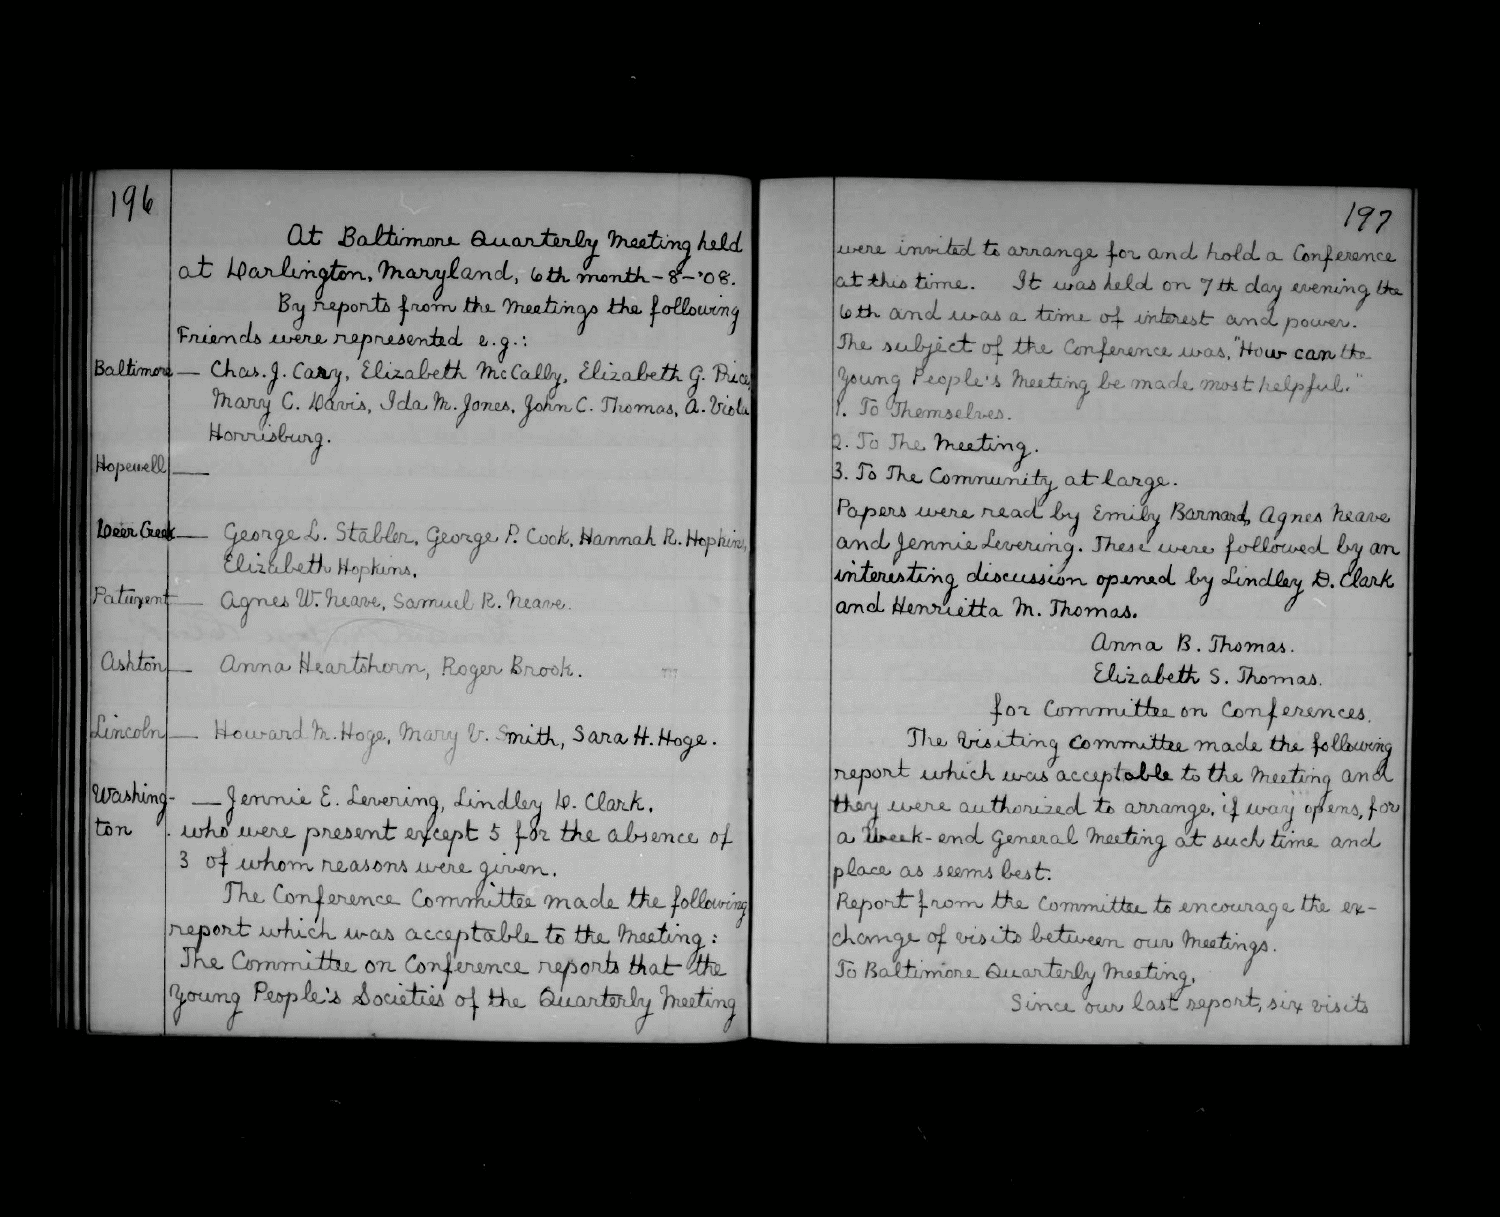 196
At Baltimore Quarterly Meeting held
at Darlington, Maryland, 6th month-8-'08.
By reports from the Meetings the following
Friends were represented e.g.:
Baltimore — Chas. J. Cary, Elizabeth McCally, Elizabeth G. Price,
Mary C. Davis, Ida M. Jones, John C. Thomas, A. Viola
Horrisburg.
Hopewell —
Deer Creek — George L. Stabler, George P. Cook, Hannah R. Hopkins,
Elizabeth Hopkins.
Patuxent — Agnes W. Neave, Samuel R. Neave.
Ashton — Anna Heartshorn, Roger Brook.
Lincoln — Howard M. Hoge, Mary V. Smith, Sara H. Hoge.
Washing- — Jennie E. Levering, Lindley D. Clark.
ton . who were present except 5 for the absence of
3 of whom reasons were given.
The Conference Committee made the following
report which was acceptable to the Meeting:
The Committee on Conference reports that the
Young People's Societies of the Quarterly Meeting
197
were invited to arrange for and hold a Conference
at this time. It was held on 7th day evening the
6th and was a time of interest and power.
The subject of the Conference was, "How can the
Young People's Meeting be made most helpful."
1. To Themselves.
2. To The Meeting.
3. To The Community at large.
Papers were read by Emily Barnard, Agnes Neave
and Jennie Levering. These were followed by an
interesting discussion opened by Lindley D. Clark
and Henrietta M. Thomas.
Anna B. Thomas.
Elizabeth S. Thomas.
for Committee on Conferences.
The Visiting Committee made the following
report which was acceptable to the Meeting and
they were authorized to arrange, if way opens, for
a Week-end General Meeting at such time and
place as seems best.
Report from the Committee to encourage the ex-
change of visits between our Meetings.
To Baltimore Quarterly Meeting,
Since our last report, six visits